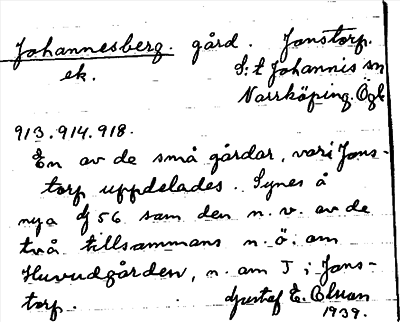 Johannesberg. gård. Jonstorp.
ek. S:t Johannis sn
Norrköping. Ögl
913. 914. 918.
En av de små gårdar, vari Jons-
torp uppdelades. Synes å
nya Gf 56 som den n. v. av de
två tillsammans n. ö. om
Huvudgården, n. om J i Jons-
torp. Gustaf E. Olsson
1939.